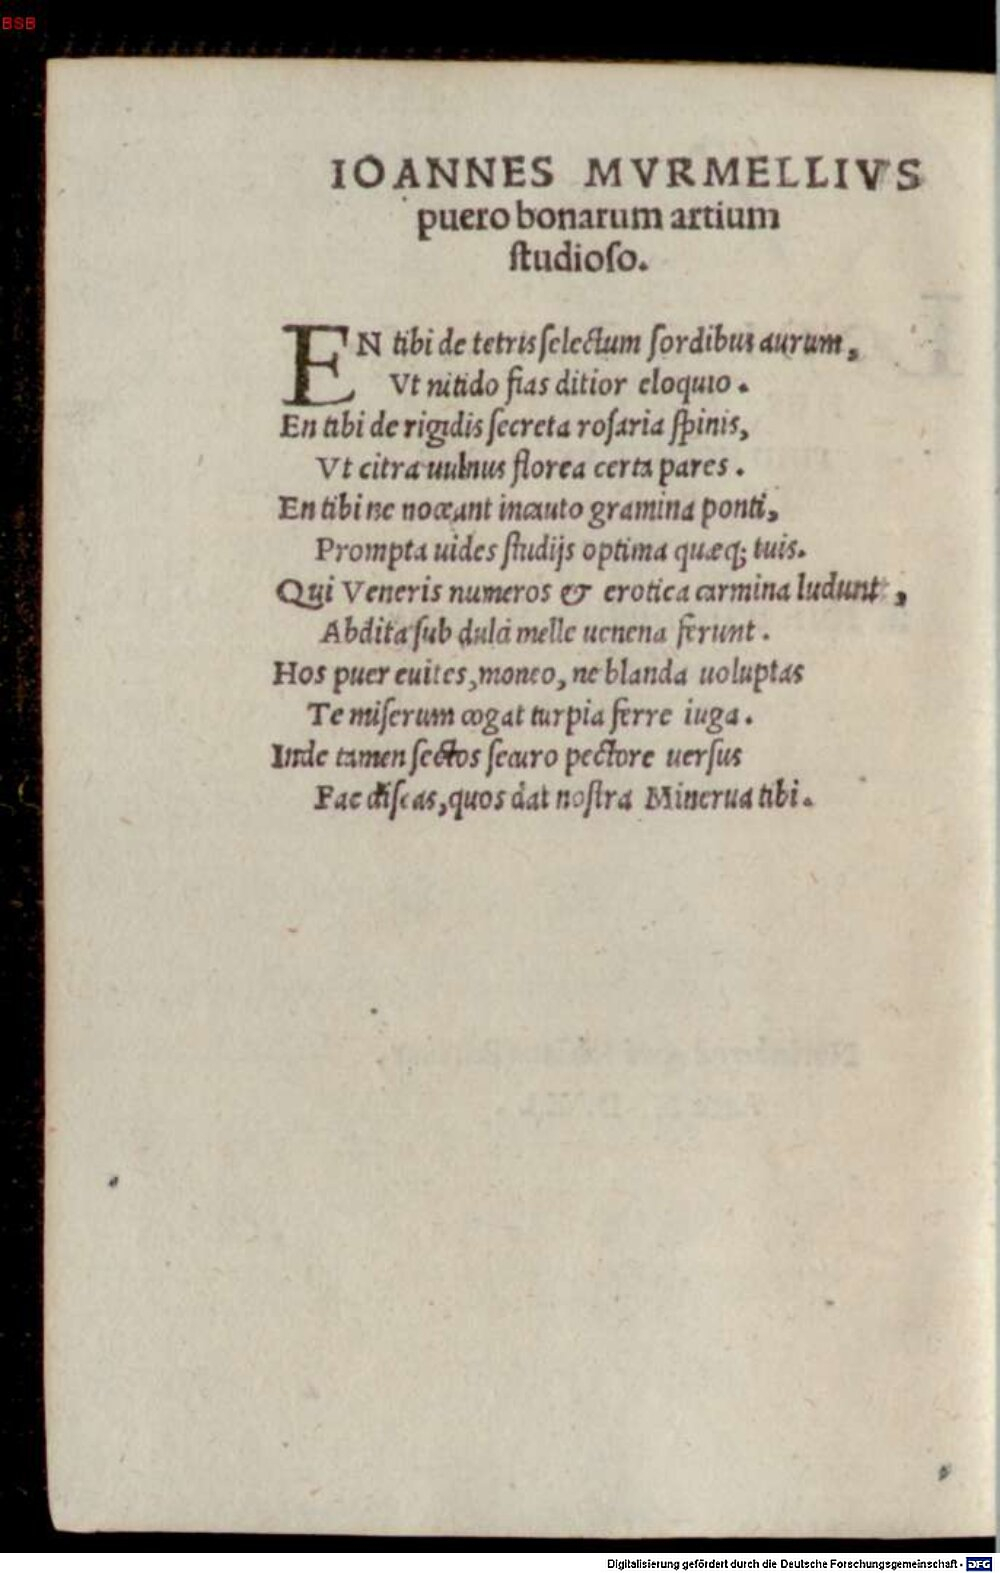 BSB
IOANNES MVRMELLIVS
puero bonarum artium
ſtudioſo.
EN tibi de tetris ſelectum ſordibus aurum,
Vt nitido fias ditior eloquio.
En tibi de rigidis ſecreta roſaria ſpinis,
Vt citra uulnus florea certa pares.
En tibi ne noceant incauto gramina ponti,
Prompta uides ſtudijs optima quæq; tuis.
Qui Veneris numeros & erotica carmina ludunt,
Abdita ſub dulci melle uenena ferunt.
Hos puer euites, moneo, ne blanda uoluptas
Te miſerum cogat turpia ferre iuga.
Inde tamen ſectos ſecuro pectore uerſus
Fac diſcas, quos dat noſtra Minerua tibi.
Digitalisierung gefördert durch die Deutsche Forschungsgemeinschaft - DFG